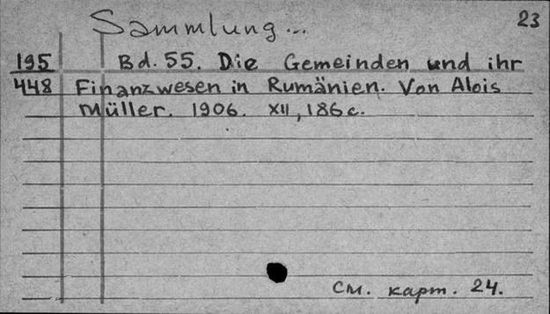 23
Sammlung...
195 Bd. 55. Die Gemeinden und ihr
448 Finanzwesen in Rumänien. Von Alois
Müller. 1906. XII, 186 c.
См. карт. 24.